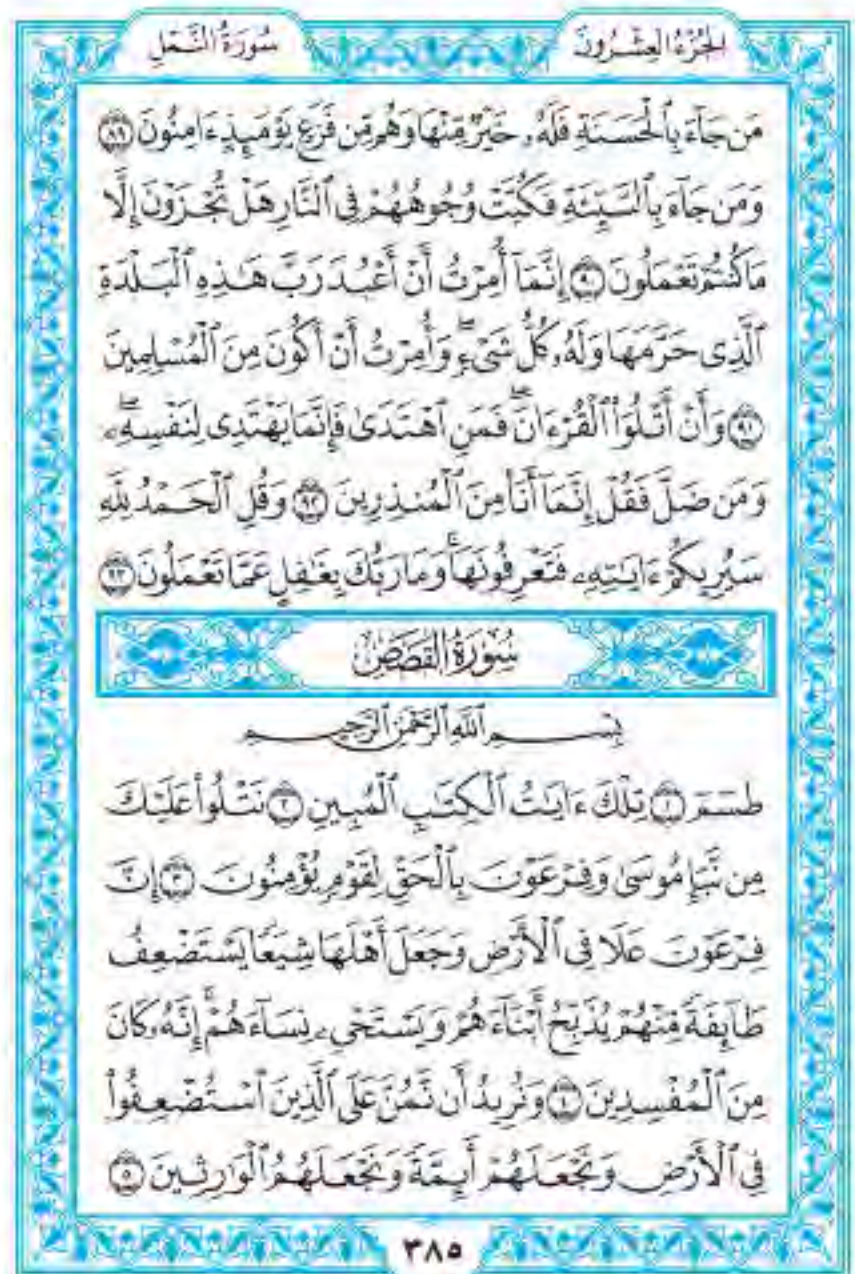 الجزء العشرون
سورة النمل
مَن جَآءَ بِٱلْحَسَنَةِ فَلَهُۥ خَيْرٌ مِّنْهَا وَهُم مِّن فَزَعٍ يَوْمَئِذٍ ءَامِنُونَ ٨٩
وَمَن جَآءَ بِٱلسَّيِّئَةِ فَكُبَّتْ وُجُوهُهُمْ فِى ٱلنَّارِ هَلْ تُجْزَوْنَ إِلَّا
مَا كُنتُمْ تَعْمَلُونَ ٩٠ إِنَّمَآ أُمِرْتُ أَنْ أَعْبُدَ رَبَّ هَـٰذِهِ ٱلْبَلْدَةِ
ٱلَّذِى حَرَّمَهَا وَلَهُۥ كُلُّ شَىْءٍ ۖ وَأُمِرْتُ أَنْ أَكُونَ مِنَ ٱلْمُسْلِمِينَ
٩١ وَأَنْ أَتْلُوَا۟ ٱلْقُرْءَانَ ۖ فَمَنِ ٱهْتَدَىٰ فَإِنَّمَا يَهْتَدِى لِنَفْسِهِۦ ۖ
وَمَن ضَلَّ فَقُلْ إِنَّمَآ أَنَا۠ مِنَ ٱلْمُنذِرِينَ ٩٢ وَقُلِ ٱلْحَمْدُ لِلَّهِ
سَيُرِيكُمْ ءَايَـٰتِهِۦ فَتَعْرِفُونَهَا ۚ وَمَا رَبُّكَ بِغَـٰفِلٍ عَمَّا تَعْمَلُونَ ٩٣
سورة القصص
بِسْمِ ٱللَّهِ ٱلرَّحْمَـٰنِ ٱلرَّحِيمِ
طسٓمٓ ١ تِلْكَ ءَايَـٰتُ ٱلْكِتَـٰبِ ٱلْمُبِينِ ٢ نَتْلُوا۟ عَلَيْكَ
مِن نَّبَإِ مُوسَىٰ وَفِرْعَوْنَ بِٱلْحَقِّ لِقَوْمٍ يُؤْمِنُونَ ٣ إِنَّ
فِرْعَوْنَ عَلَا فِى ٱلْأَرْضِ وَجَعَلَ أَهْلَهَا شِيَعًا يَسْتَضْعِفُ
طَآئِفَةً مِّنْهُمْ يُذَبِّحُ أَبْنَآءَهُمْ وَيَسْتَحْىِۦ نِسَآءَهُمْ ۚ إِنَّهُۥ كَانَ
مِنَ ٱلْمُفْسِدِينَ ٤ وَنُرِيدُ أَن نَّمُنَّ عَلَى ٱلَّذِينَ ٱسْتُضْعِفُوا۟
فِى ٱلْأَرْضِ وَنَجْعَلَهُمْ أَئِمَّةً وَنَجْعَلَهُمُ ٱلْوَٰرِثِينَ ٥
٣٨٥